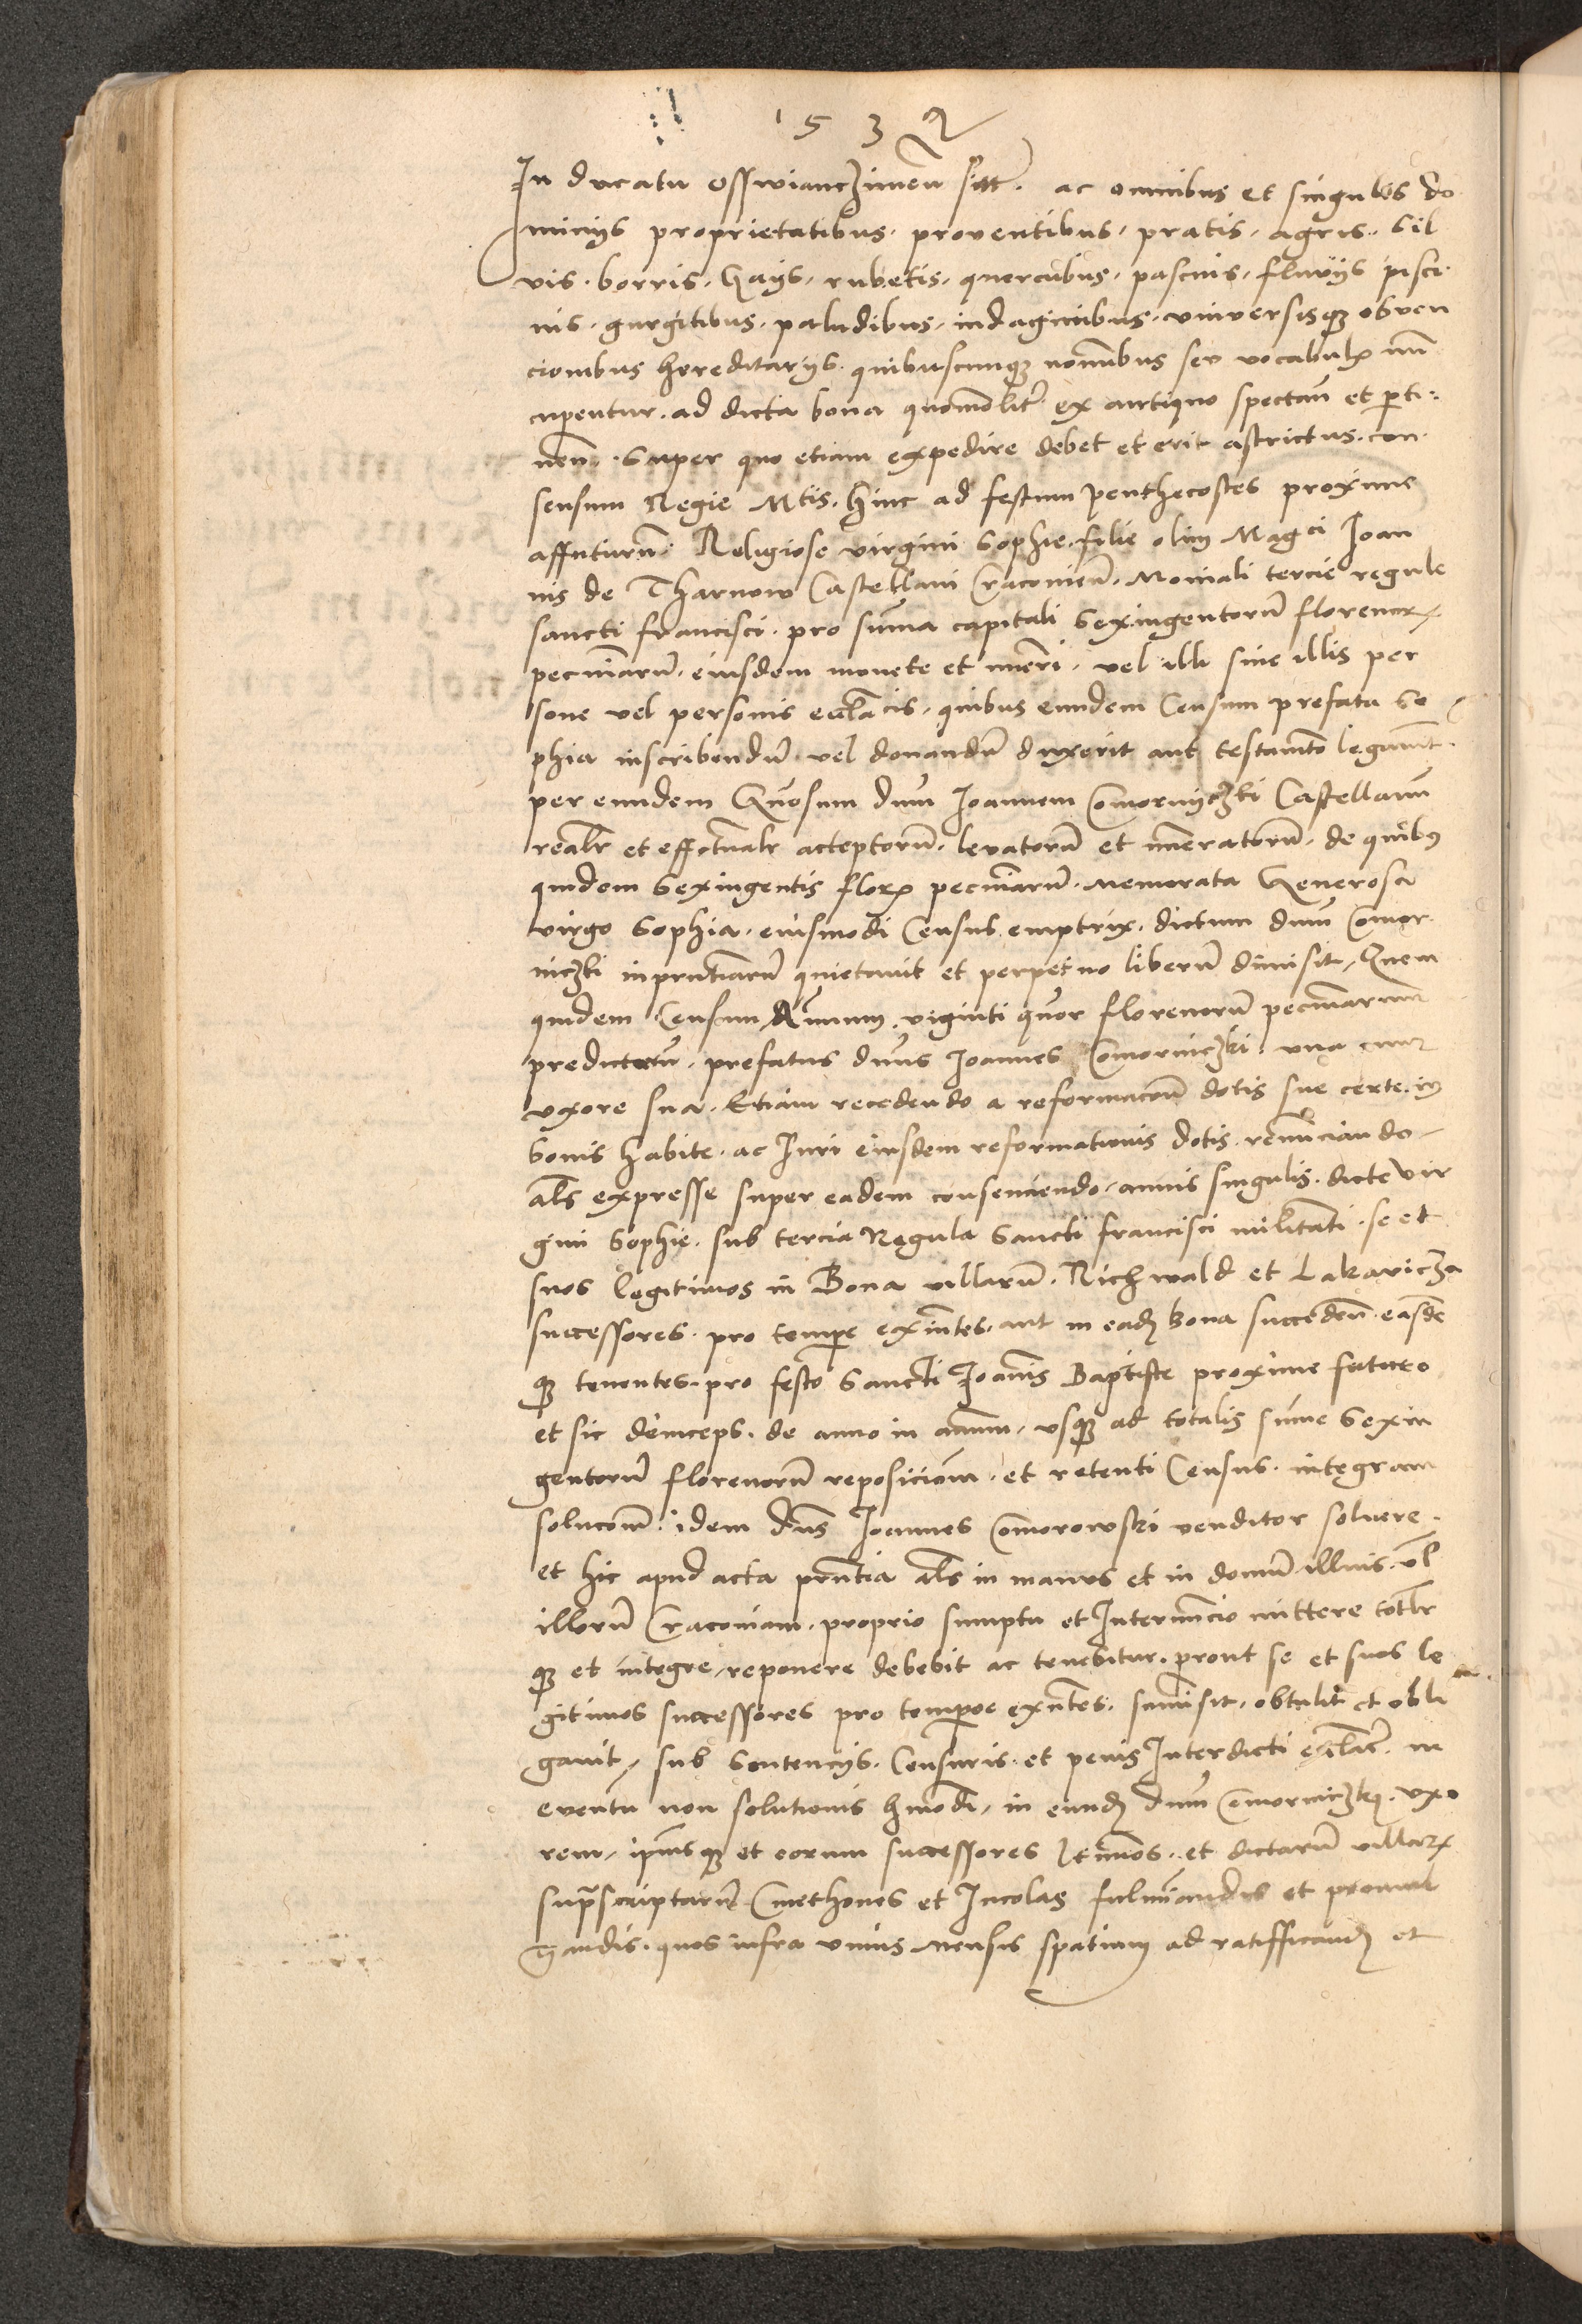 1532
In ducatu Osswianczimen̄ sitt. ac omnibus et singulis do
minijs proprietatibus. proventibus. pratis. agris. Sil
vis. borris. Gaijs. rubetis. quercubus. pascuis. fluvijs pisci
nis. gurgitibus. paludibus. indaginibus. universisqȝ obven
cionibus hereditarijs. quibuscunqȝ nominibus seu vocabulꝝ nun̄
cupentur. ad dicta bona quomōlitr̄ ex antiquo spectan̄ et p̄ti:
nen̄. Super quo etiam expedire debet et erit astrictus. con
sensum Regie Mtis. hinc ad festum Penthecostes proxime
affuturum̄. Religiose virgini Sophie. filie olim Magci Joan
nis de Tharnow Castellani Cracovien̄. Moniali tercie regule
sancti francisci. pro sum̄a capitali Sexingentorum̄ florenorꝝ
pecuniarum̄. eiusdem monete et numeri. vel illi sive illis per
sone vel personis eccl̄acis. quibus eundem Censum prefata So
phia inscribendum̄. vel donandum̄ duxerit aut testamto legaverit.
per eundem Gn̄osum dn̄um Joannem Comornyczki Castellanum̄
realr̄ et effectualr̄ acceptorum̄. levatorum̄ et numeratorum̄. de quibus
quidem Sexingentis florꝝ pecuniarum̄. Memorata Generosa
virgo Sophia. eiusmodi Census emptrix. dictum dn̄um Comor
niczki inpn̄tiarum̄ quietavit et perpetuo liberum̄ dimisit. Quem
quidem Censum Annuum. viginti quatuor florenorum̄ pecuniarum
predictarum̄. prefatus dn̄us Joannes Comorniczki. una cum
uxore sua. Etiam recedendo a reformacōne dotis sue certe. in
bonis habite. ac Juri eiusdem reformationis dotis. renunciando
al̄s expresse super eadem consenciendo. annis singulis. dicte vir
gini Sophie. sub tercia Regula Sancti francisci militanti. se et
suos legitimos in Bona villarum̄. Richwald et Lakavicza
successores. pro tempe existn̄tes. aut in eadꝫ bona succeden̄. easde
qȝ tenentes. pro festo Sancti Joannis Baptiste proxime futuro
et sic deinceps. de anno in annum. usqȝ ad totalis sum̄e Sexin
gentorum̄ florenorum̄ reposicionem. et retenti Census. integram
solucōem. idem dn̄s Joannes Comorowski venditor solvere.
et hic apud acta pn̄tia al̄s in manus et in domum̄ illius. vl̄
illorum̄ Cracoviam. proprio sumptu et Internuncio mittere totlr̄
qȝ et integre. reponere debebit ac tenebitur. prout se et suos le
gitimos successores pro tempore exn̄tes. sum̄isit. obtulit et obli
gavit. sub Sentencijs. Censuris. et penis Interdicti eccl̄ac̄. in
eventu non solutionis hmōdi. in eundꝫ dn̄um Comorniczkj. uxo
rem. ipīusqȝ et eorum successores ltimos. et dictarum̄ villarꝝ
suprascriptarum̄ Cmethones et Incolas fulminandis et promul
gandis. quos infra unius Mensis spatium ad ratifficandꝫ et